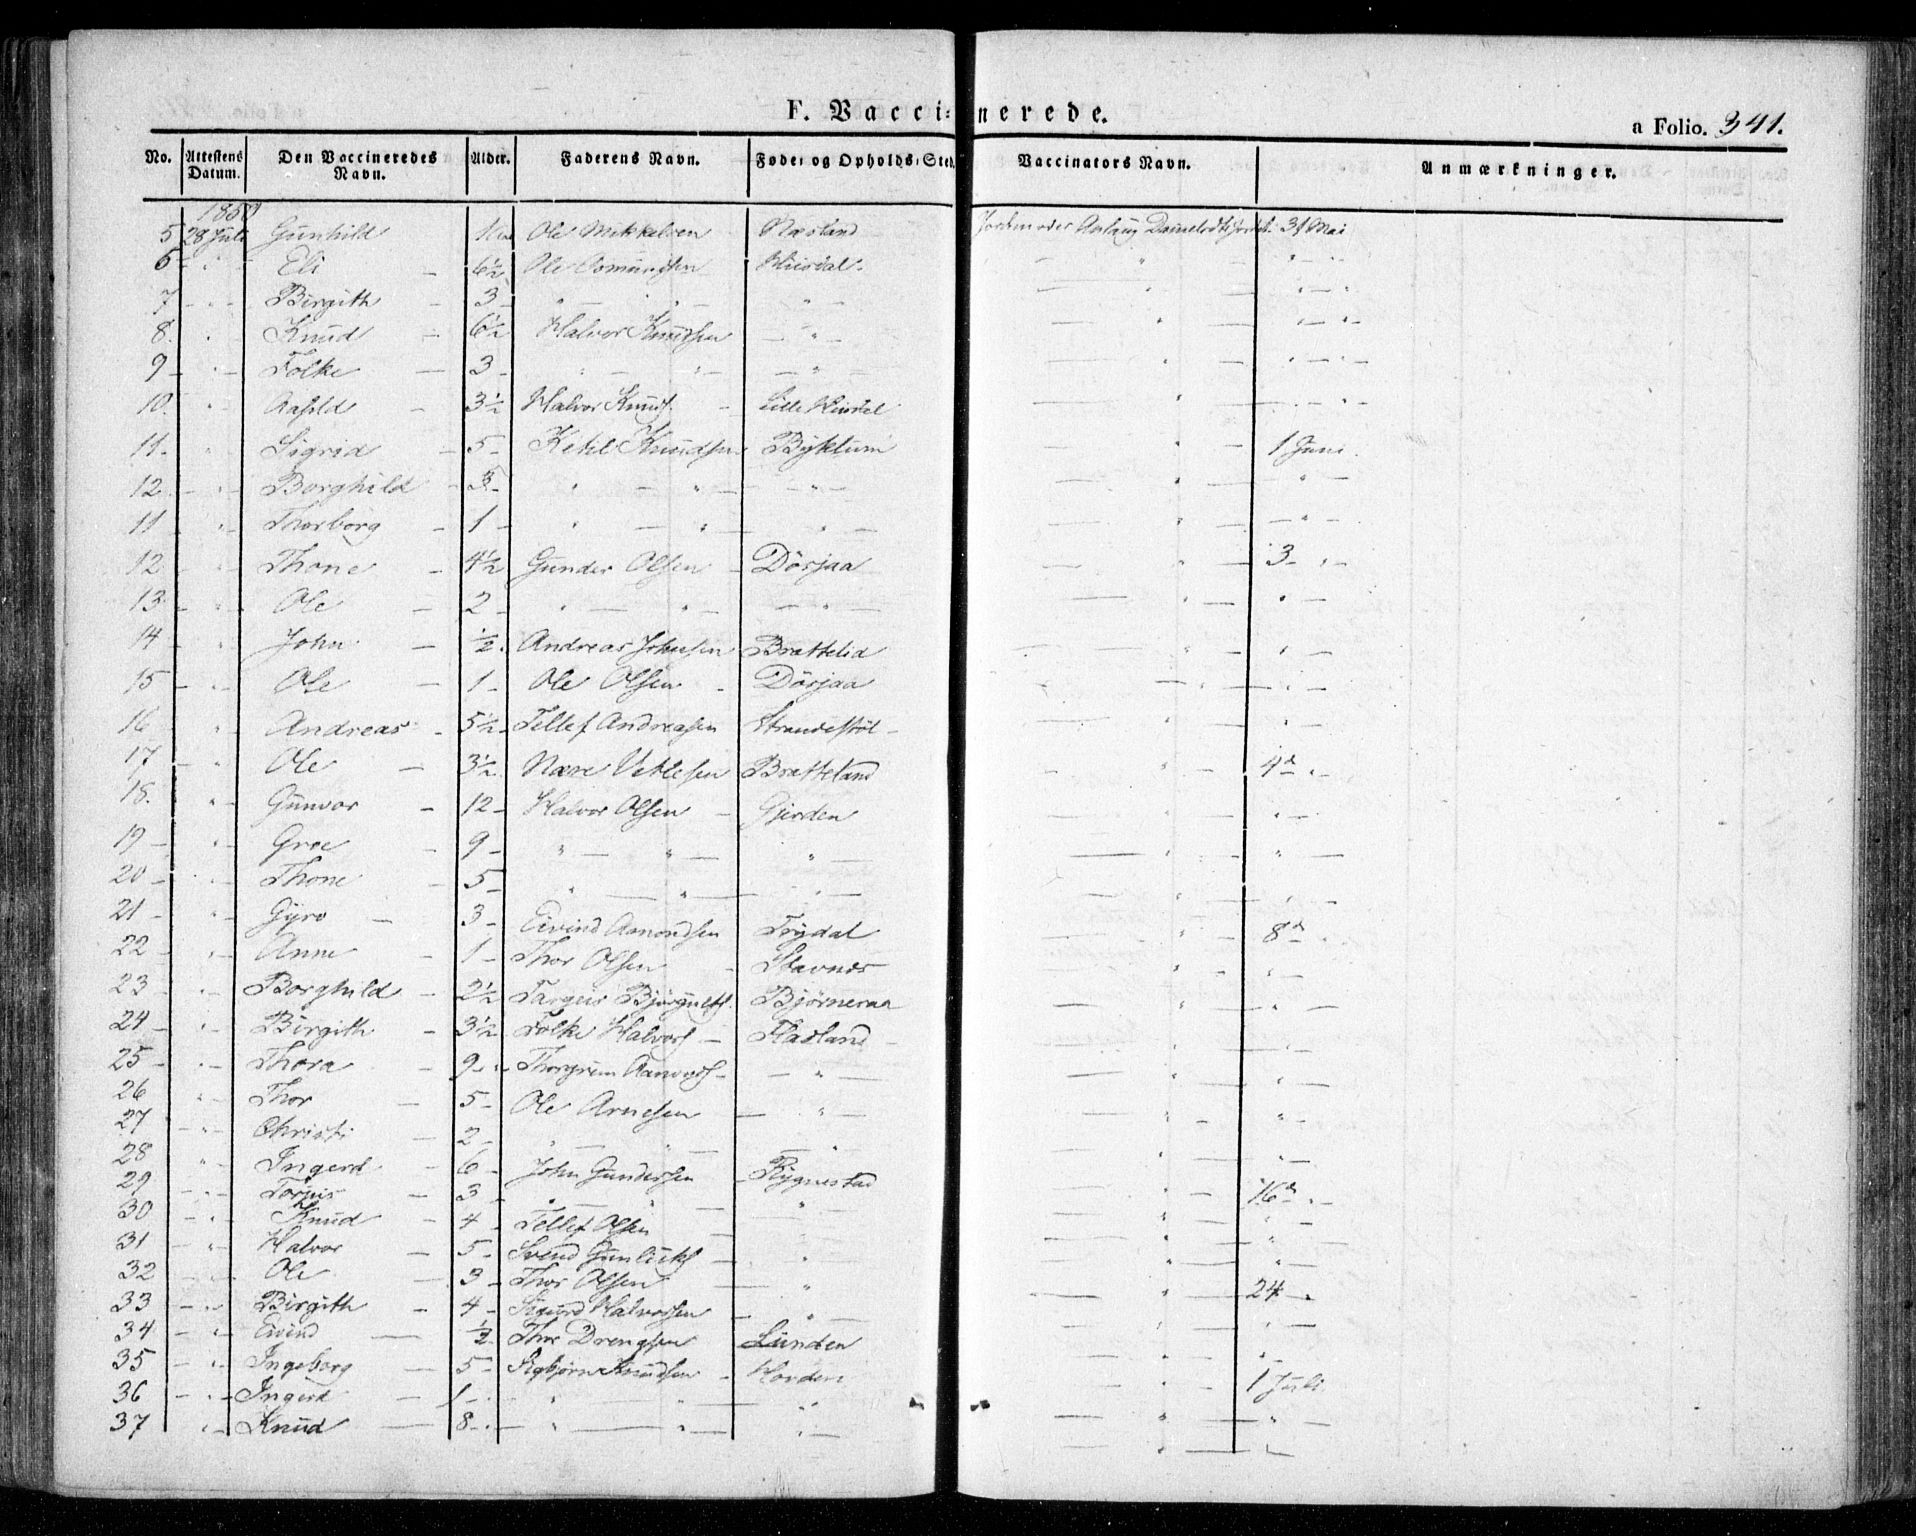 F. Vaccinerede.
a Folio. 341.
No. Attestens Datum. Den Vaccineredes Navn. Alder. Faderens Navn. Føde- og Opholds-Sted. Vaccinators Navn. Anmærkninger.
1850
5 28 Juli Gunhild Ole Mikkelsen Næsland Jordemoder Aslaug 31 Mai
6 " Eli - 6½ Ole Osmundsen Huisdal. " " - " -
7 - " - Birgith - 3 - " - " - - " - " " - " -
8. " Knud - 6½ Halvor Knudsen - " - " " - " -
9 - " - Folke - 3 - " - " - - " - " " - " -
10. " - Aasold - 3½ Halvor Knuds. - Lille Huisdal " " - " -
11. " Sigrid - 5 - Ketil Knudsen Byklum " 1 Juni.
12 - " - Borghild - 3 - " - " - - " - " - " -
11 " - Thorborg - 1 - " - " - " - " - " -
12 " Thone - 4½ Gunder Olsen - Dörjaa " 3 - " -
13 - " - Ole - 2 - " - " - - " - " " -
14 " John - ½. Andreas Johnsen Brattelid " " -
15 - " - Ole - 1 - Ole Olsen - Dörjaa " - " -
16 " Andreas - 5½ Tellef Andreasen Strandestöl - " "
17 - " - Ole - 3½ Nære Vetlesen Bratteland " 4de " -
18. " - Gunvor - 12 - Halvor Olsen - Gjerden " - " -
19 - " - Groe 9 - " - " - " - " - " -
20 - Thone - 5 - " - " - " - " - " -
21 - " - Gyro - 3 - Eivind Amondsen Trydal " - 8de " .
22 - " - Anne - 1 - Thor Olsen - Stavnes " - " -
23 - " - Borghild - 2½ Targeir Björgulfs. Björneraa " - " -
24 - " - Birgith - 3½ Folke Halvors - Flatland - " - " -
25 - " - Thora - 9 - " Thorgrim Aanunds - - " - " - " -
26 " - Thor - 5 - Ole Arnesen - " - " - " -
27 - " - Christi - 2 - " - " - " - " - " -
28 " Ingerd - 6 - John Gundersen - Rygnestad " - " -
29 - " - Torjus - 3 - " - " - " - " - 16de " -
30 " - Knud - 4 - Tellef Olsen - " - " - " -
31 - " - Halvor - 5 - Svend Gunleiks - " " - " -
32 - " - Ole - 3 - Thor Olsen - " " - " -
33 - " - Birgith - 4 - Sigurd Halvorsen - " - " 24 "
34 - " Eivind - ½ Thor Drengsen Lunden " - " -
35 - " - Ingeborg - 5 - Sigbjörn Knudsen - Horden " - " -
36 - " - Ingerd - 1 - " - " - " - " - 1 Juli.
37 " - Knud - 8 - " - " - " - " - " -